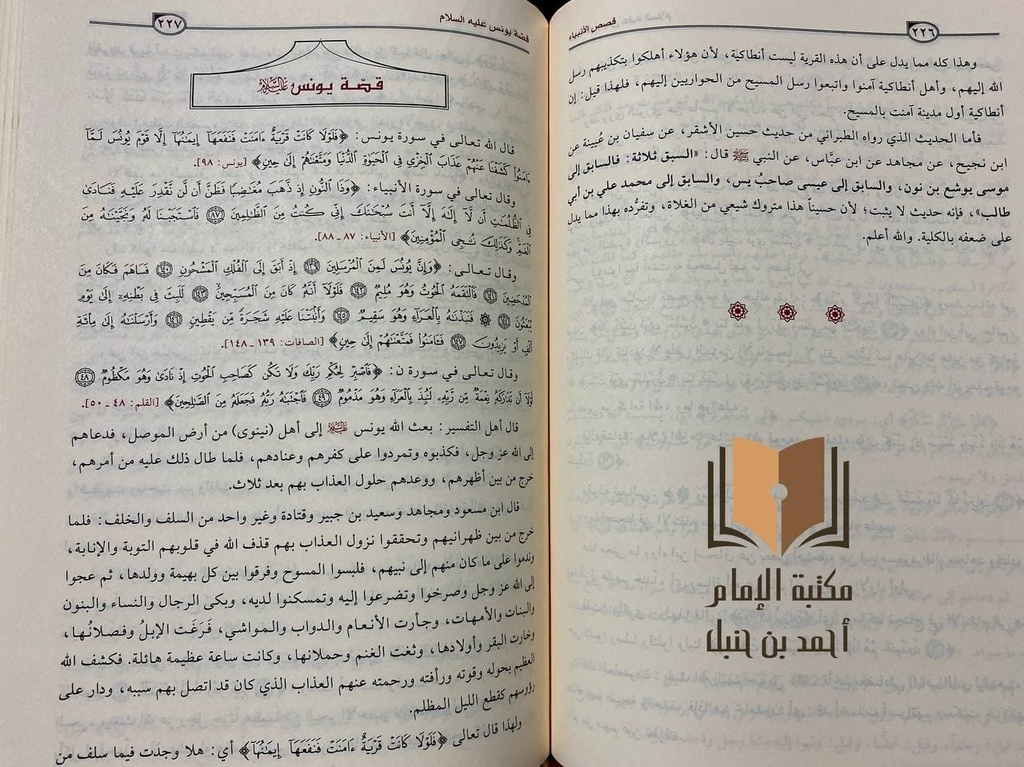 ٢٢٦
قصص الأنبياء
وهذا كله مما يدل على أن هذه القرية ليست أنطاكية، لأن هؤلاء أهلكوا بتكذيبهم رسل
الله إليهم، وأهل أنطاكية آمنوا واتبعوا رسل المسيح من الحواريين إليهم، فلهذا قيل: إن
أنطاكية أول مدينة آمنت بالمسيح.
فأما الحديث الذي رواه الطبراني من حديث حسين الأشقر، عن سفيان بن عُيينة عن
ابن نجيح، عن مجاهد عن ابن عبّاس، عن النبي ﷺ قال: «السبق ثلاثة: فالسابق إلى
موسى يوشع بن نون، والسابق إلى عيسى صاحبُ يس، والسابق إلى محمد علي بن أبي
طالب»، فإنه حديث لا يثبت؛ لأن حسيناً هذا متروك شيعي من الغلاة، وتفرُّده بهذا مما يدل
على ضعفه بالكلية. والله أعلم.
مكتبة الإمام
أحمد بن حنبل
قصة يونس عليه السلام
٢٢٧
قصّة يونس عليه السلام
قال الله تعالى في سورة يونس: ﴿فَلَوْلَا كَانَتْ قَرْيَةٌ ءَامَنَتْ فَنَفَعَهَآ إِيمَٰنُهَآ إِلَّا قَوْمَ يُونُسَ لَمَّآ
ءَامَنُوا۟ كَشَفْنَا عَنْهُمْ عَذَابَ ٱلْخِزْىِ فِى ٱلْحَيَوٰةِ ٱلدُّنْيَا وَمَتَّعْنَٰهُمْ إِلَىٰ حِينٍ﴾ [يونس: ٩٨].
وقال تعالى في سورة الأنبياء: ﴿وَذَا ٱلنُّونِ إِذ ذَّهَبَ مُغَٰضِبًا فَظَنَّ أَن لَّن نَّقْدِرَ عَلَيْهِ فَنَادَىٰ
فِى ٱلظُّلُمَٰتِ أَن لَّآ إِلَٰهَ إِلَّآ أَنتَ سُبْحَٰنَكَ إِنِّى كُنتُ مِنَ ٱلظَّٰلِمِينَ ٨٧ فَٱسْتَجَبْنَا لَهُۥ وَنَجَّيْنَٰهُ مِنَ
ٱلْغَمِّ وَكَذَٰلِكَ نُـۨجِى ٱلْمُؤْمِنِينَ﴾ [الأنبياء: ٨٧ ـ ٨٨].
وقال تعالى: ﴿وَإِنَّ يُونُسَ لَمِنَ ٱلْمُرْسَلِينَ ١٣٩ إِذْ أَبَقَ إِلَى ٱلْفُلْكِ ٱلْمَشْحُونِ ١٤٠ فَسَاهَمَ فَكَانَ مِنَ
ٱلْمُدْحَضِينَ ١٤١ فَٱلْتَقَمَهُ ٱلْحُوتُ وَهُوَ مُلِيمٌ ١٤٢ فَلَوْلَآ أَنَّهُۥ كَانَ مِنَ ٱلْمُسَبِّحِينَ ١٤٣ لَلَبِثَ فِى بَطْنِهِۦٓ إِلَىٰ يَوْمِ
يُبْعَثُونَ ١٤٤ فَنَبَذْنَٰهُ بِٱلْعَرَآءِ وَهُوَ سَقِيمٌ ١٤٥ وَأَنۢبَتْنَا عَلَيْهِ شَجَرَةً مِّن يَقْطِينٍ ١٤٦ وَأَرْسَلْنَٰهُ إِلَىٰ مِا۟ئَةِ
أَلْفٍ أَوْ يَزِيدُونَ ١٤٧ فَـَٔامَنُوا۟ فَمَتَّعْنَٰهُمْ إِلَىٰ حِينٍ﴾ [الصافات: ١٣٩ ـ ١٤٨].
وقال تعالى في سورة ن: ﴿فَٱصْبِرْ لِحُكْمِ رَبِّكَ وَلَا تَكُن كَصَاحِبِ ٱلْحُوتِ إِذْ نَادَىٰ وَهُوَ مَكْظُومٌ ٤٨
لَّوْلَآ أَن تَدَٰرَكَهُۥ نِعْمَةٌ مِّن رَّبِّهِۦ لَنُبِذَ بِٱلْعَرَآءِ وَهُوَ مَذْمُومٌ ٤٩ فَٱجْتَبَٰهُ رَبُّهُۥ فَجَعَلَهُۥ مِنَ ٱلصَّٰلِحِينَ﴾ [القلم: ٤٨ ـ ٥٠].
قال أهل التفسير: بعث الله يونس عليه السلام إلى أهل (نينوى) من أرض الموصل، فدعاهم
إلى الله عز وجل، فكذبوه وتمردوا على كفرهم وعنادهم، فلما طال ذلك عليه من أمرهم،
خرج من بين أظهرهم، ووعدهم حلول العذاب بهم بعد ثلاث.
قال ابن مسعود ومجاهد وسعيد بن جبير وقتادة وغير واحد من السلف والخلف: فلما
خرج من بين ظهرانيهم وتحققوا نزول العذاب بهم قذف الله في قلوبهم التوبة والإنابة،
وندموا على ما كان منهم إلى نبيهم، فلبسوا المسوح وفرقوا بين كل بهيمة وولدها، ثم عجوا
إلى الله عز وجل وصرخوا وتضرعوا إليه وتمسكنوا لديه، وبكى الرجال والنساء والبنون
والبنات والأمهات، وجأرت الأنعام والدواب والمواشي، فَرَغَت الإبلُ وفصلانُها،
وخارت البقر وأولادها، وثغت الغنم وحملانها، وكانت ساعة عظيمة هائلة. فكشف الله
العظيم بحوله وقوته ورأفته ورحمته عنهم العذاب الذي كان قد اتصل بهم سببه، ودار على
رؤوسهم كقطع الليل المظلم.
ولهذا قال تعالى ﴿فَلَوْلَا كَانَتْ قَرْيَةٌ ءَامَنَتْ فَنَفَعَهَآ إِيمَٰنُهَآ﴾ أي: هلا وجدت فيما سلف من